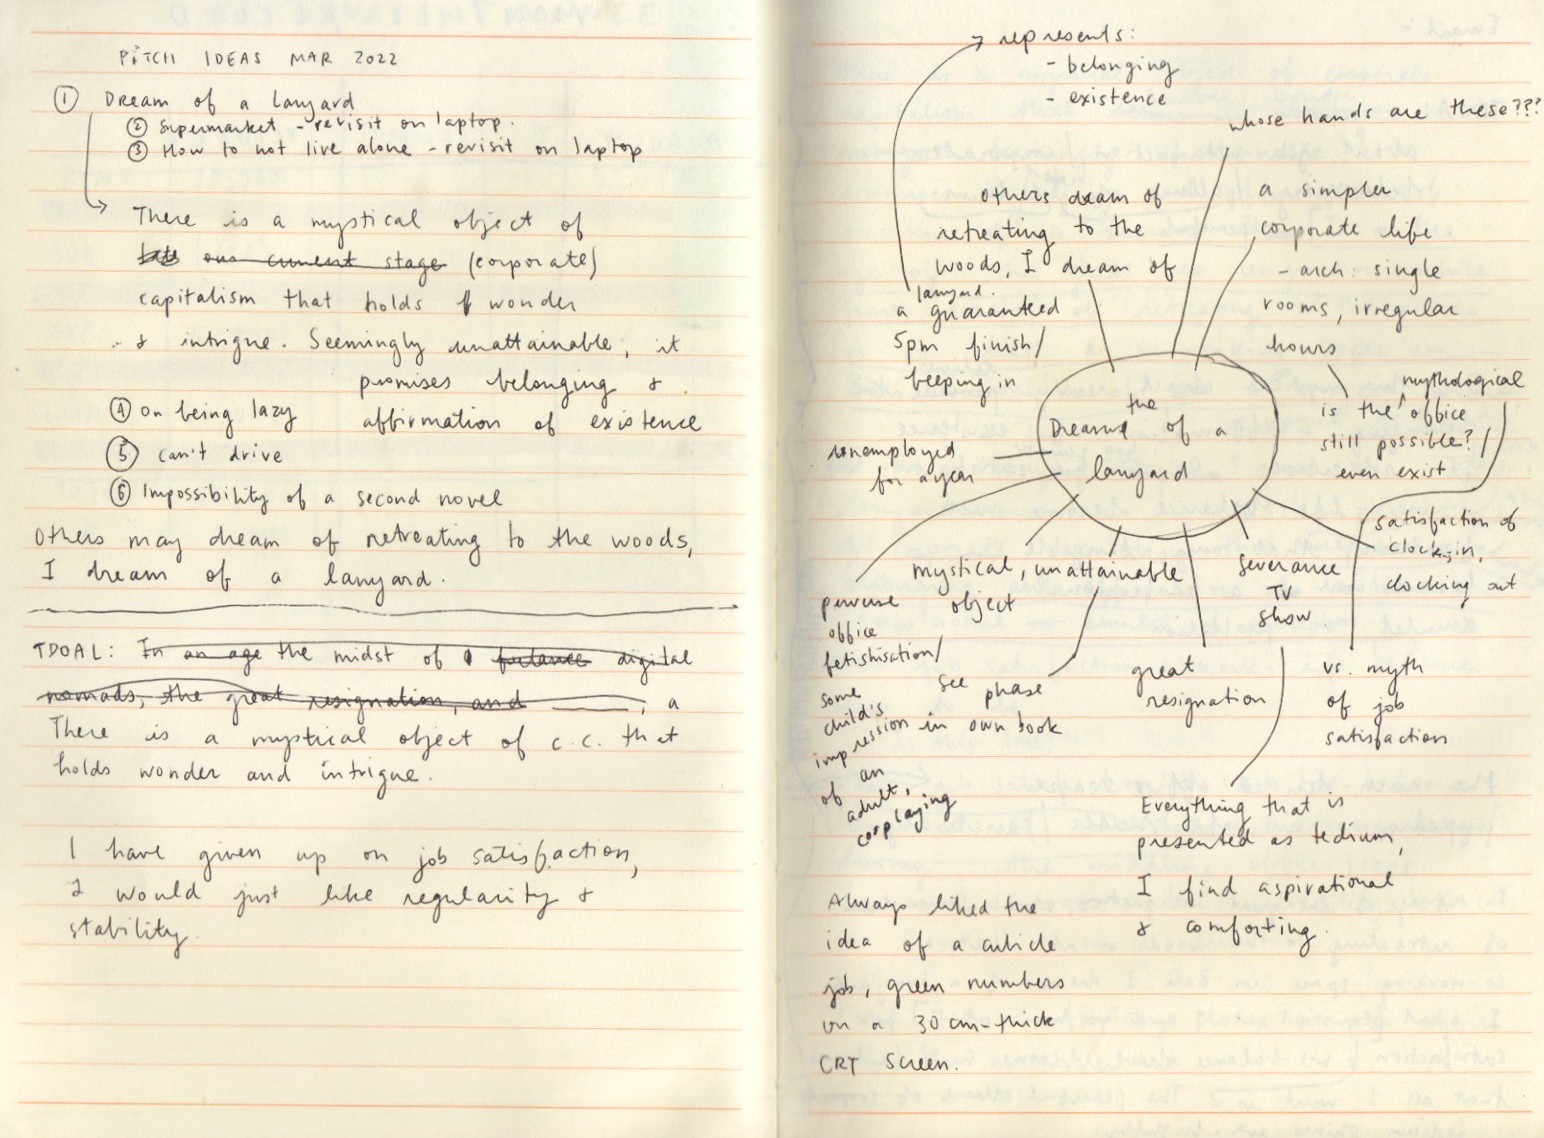 PITCH IDEAS MAR 2022
① Dream of a lanyard
② Supermarket - revisit on laptop.
③ How to not live alone - revisit on laptop
There is a mystical object of
our current stage (corporate)
capitalism that holds wonder
& intrigue. Seemingly unattainable, it
promises belonging &
affirmation of existence
④ On being lazy
⑤ can't drive
⑥ Impossibility of a second novel
Others may dream of retreating to the woods,
I dream of a lanyard.
TDOAL: In an age the midst of digital
nomads, the great resignation, and ____, a
There is a mystical object of c.c. that
holds wonder and intrigue.
I have given up on job satisfaction,
I would just like regularity &
stability.
represents:
- belonging
- existence
whose hands are these???
others dream of
retreating to the
woods, I dream of
lanyard.
a guaranteed
5pm finish/
beeping in
a simpler
corporate life
- arch: single
rooms, irregular
hours
mythological
is the ^ office
still possible?/
even exist
the
Dream of a
lanyard
unemployed
for a year
satisfaction of
clock-in,
clocking out
vs. myth
of job
satisfaction
mystical, unattainable
object
see phase
in own book
Severance
TV
show
great
resignation
perverse
office
fetishisation/
some
child's
impression
of an
adult,
cosplaying
Everything that is
presented as tedium,
I find aspirational
& comforting.
Always liked the
idea of a cubicle
job, green numbers
on a 30cm-thick
CRT screen.